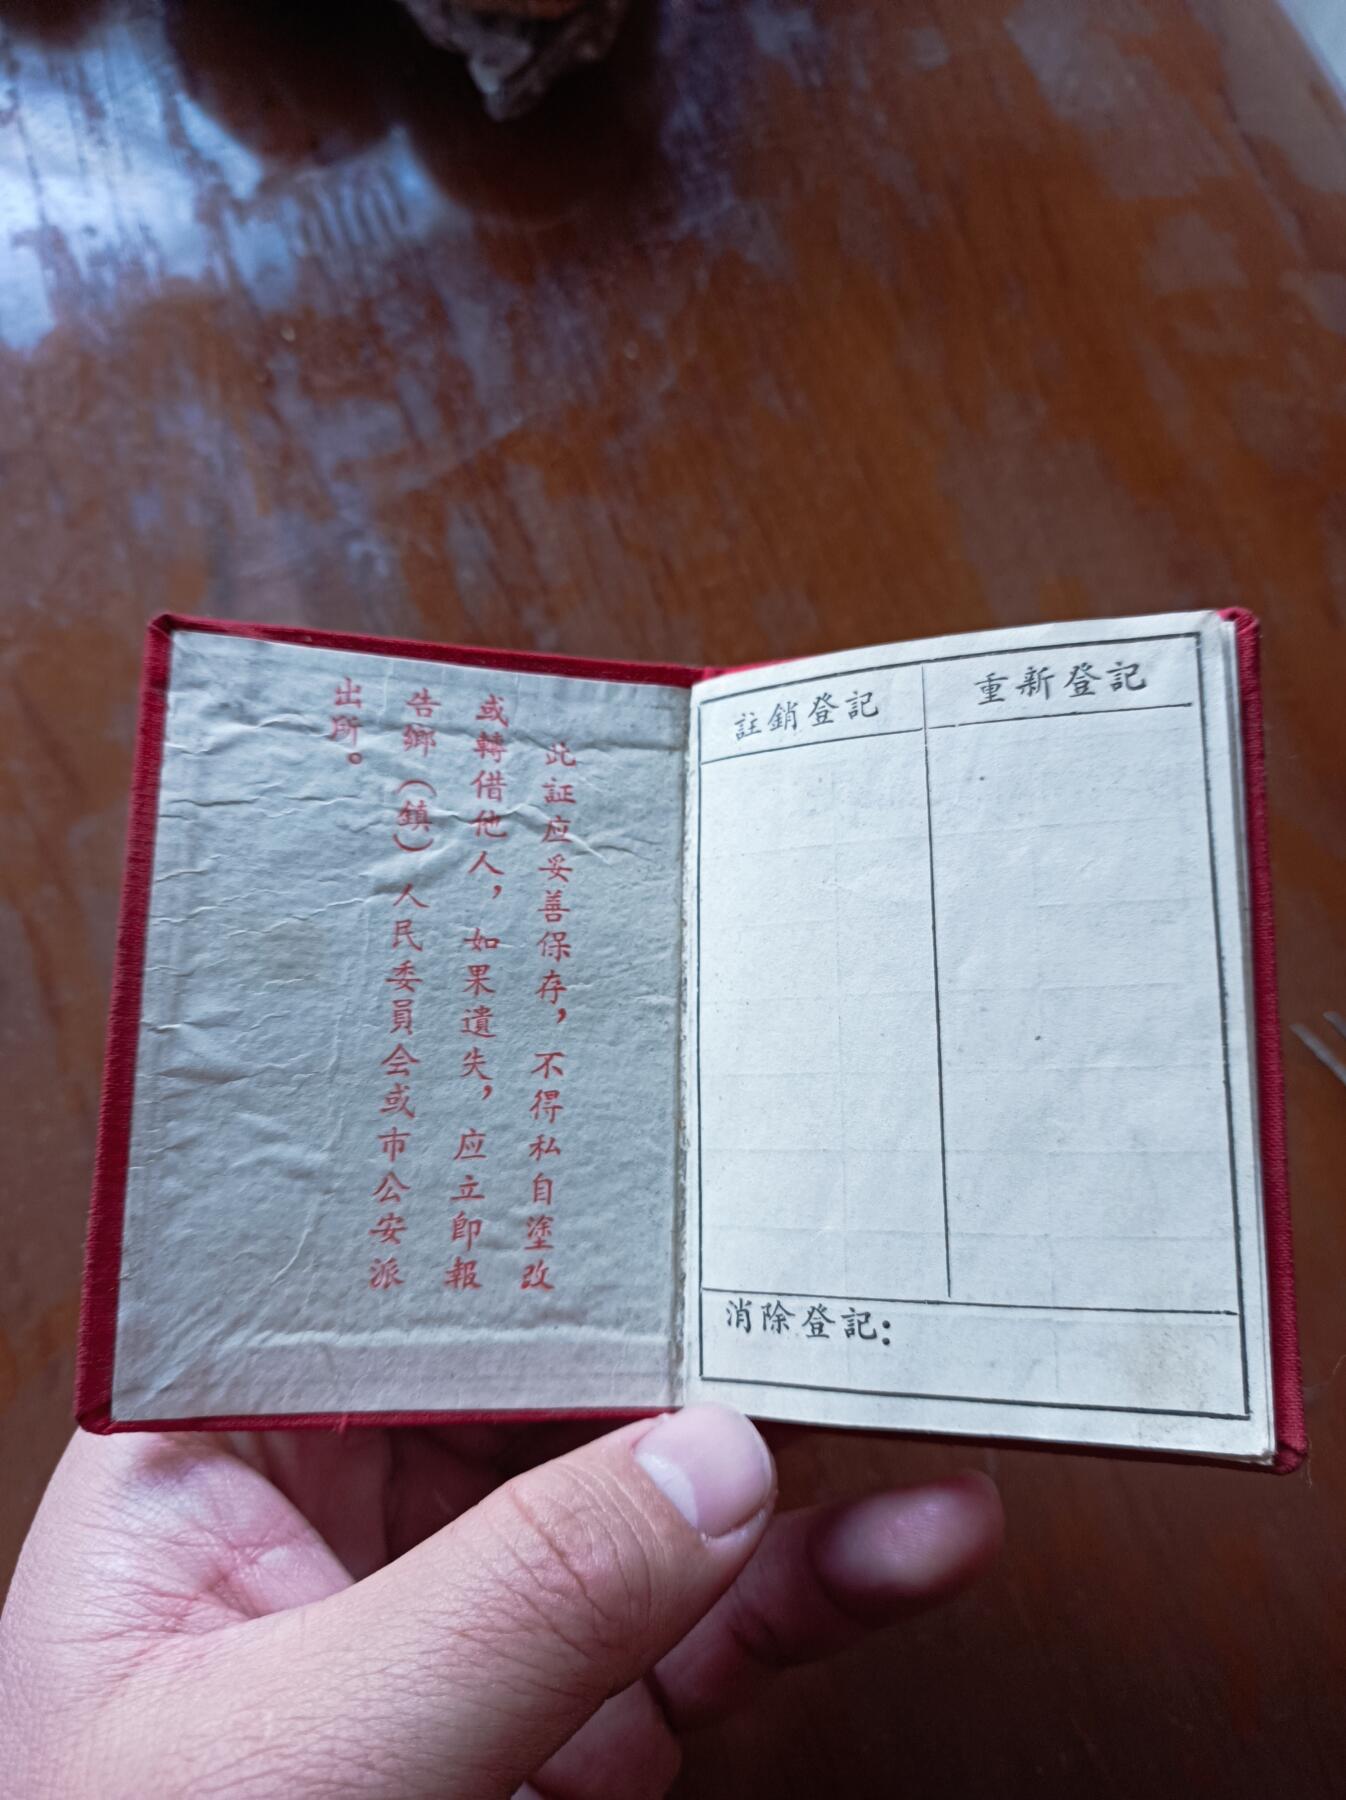 此証应妥善保存，不得私自塗改
或轉借他人，如果遺失，应立卽報
告鄉（鎮）人民委員会或市公安派
出所。
註銷登記
重新登記
消除登記：